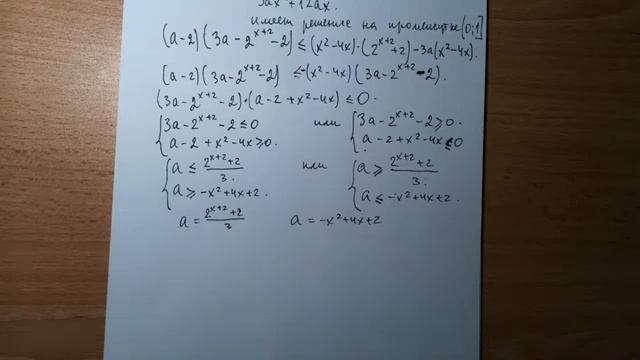 3ax² + 12ax.
имеет решение на промежутке [0;1]
(a-2)(3a-2^{x+2}-2) ≤ (x²-4x)·(2^{x+2}+2)-3a(x²-4x).
(a-2)(3a-2^{x+2}-2) ≤ -(x²-4x)(3a-2^{x+2}-2).
(3a-2^{x+2}-2)·(a-2+x²-4x) ≤ 0.
{3a-2^{x+2}-2 ≤ 0 или {3a-2^{x+2}-2 ≥ 0.
a-2+x²-4x ≥ 0. a-2+x²-4x ≤ 0
{a ≤ (2^{x+2}+2)/3. или {a ≥ (2^{x+2}+2)/3.
a ≥ -x²+4x+2. a ≤ -x²+4x+2.
a = (2^{x+2}+2)/3 a = -x²+4x+2